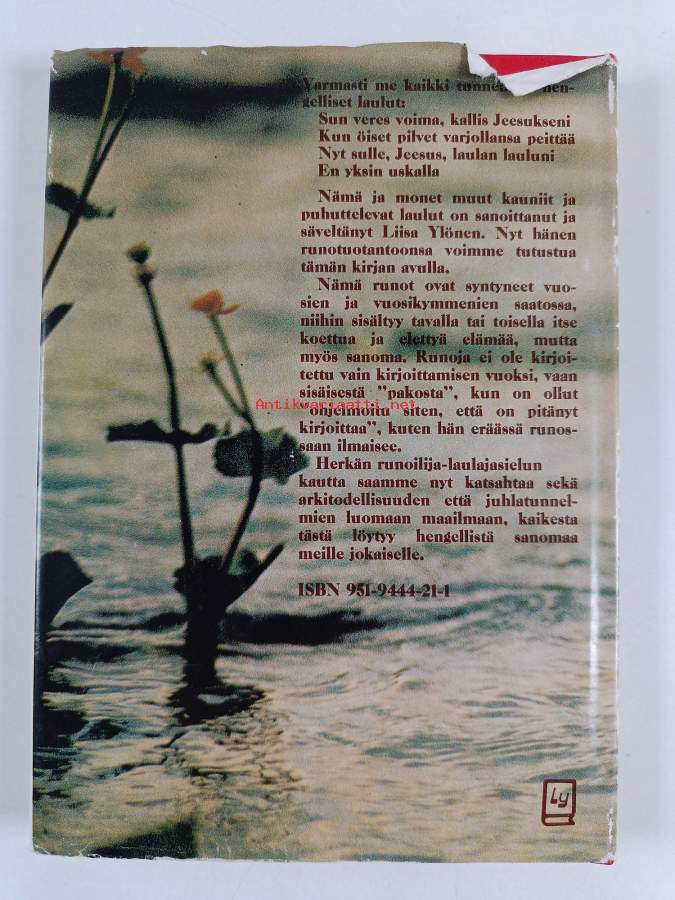 Varmasti me kaikki hen-
gelliset laulut:
Sun veres voima, kallis Jeesukseni
Kun öiset pilvet varjollansa peittää
Nyt sulle, Jeesus, laulan lauluni
En yksin uskalla
Nämä ja monet muut kauniit ja
puhuttelevat laulut on sanoittanut ja
säveltänyt Liisa Ylönen. Nyt hänen
runotuotantoonsa voimme tutustua
tämän kirjan avulla.
Nämä runot ovat syntyneet vuo-
sien ja vuosikymmenien saatossa,
niihin sisältyy tavalla tai toisella itse
koettua ja elettyä elämää, mutta
myös sanoma. Runoja ei ole kirjoi-
tettu vain kirjoittamisen vuoksi, vaan
sisäisestä "pakosta", kun on ollut
Antikvariaatti.net
"ohjelmoitu siten, että on pitänyt
kirjoittaa", kuten hän eräässä runos-
saan ilmaisee.
Herkän runoilija-laulajasielun
kautta saamme nyt katsahtaa sekä
arkitodellisuuden että juhlatunnel-
mien luomaan maailmaan, kaikesta
tästä löytyy hengellistä sanomaa
meille jokaiselle.
ISBN 951-9444-21-1
Ly